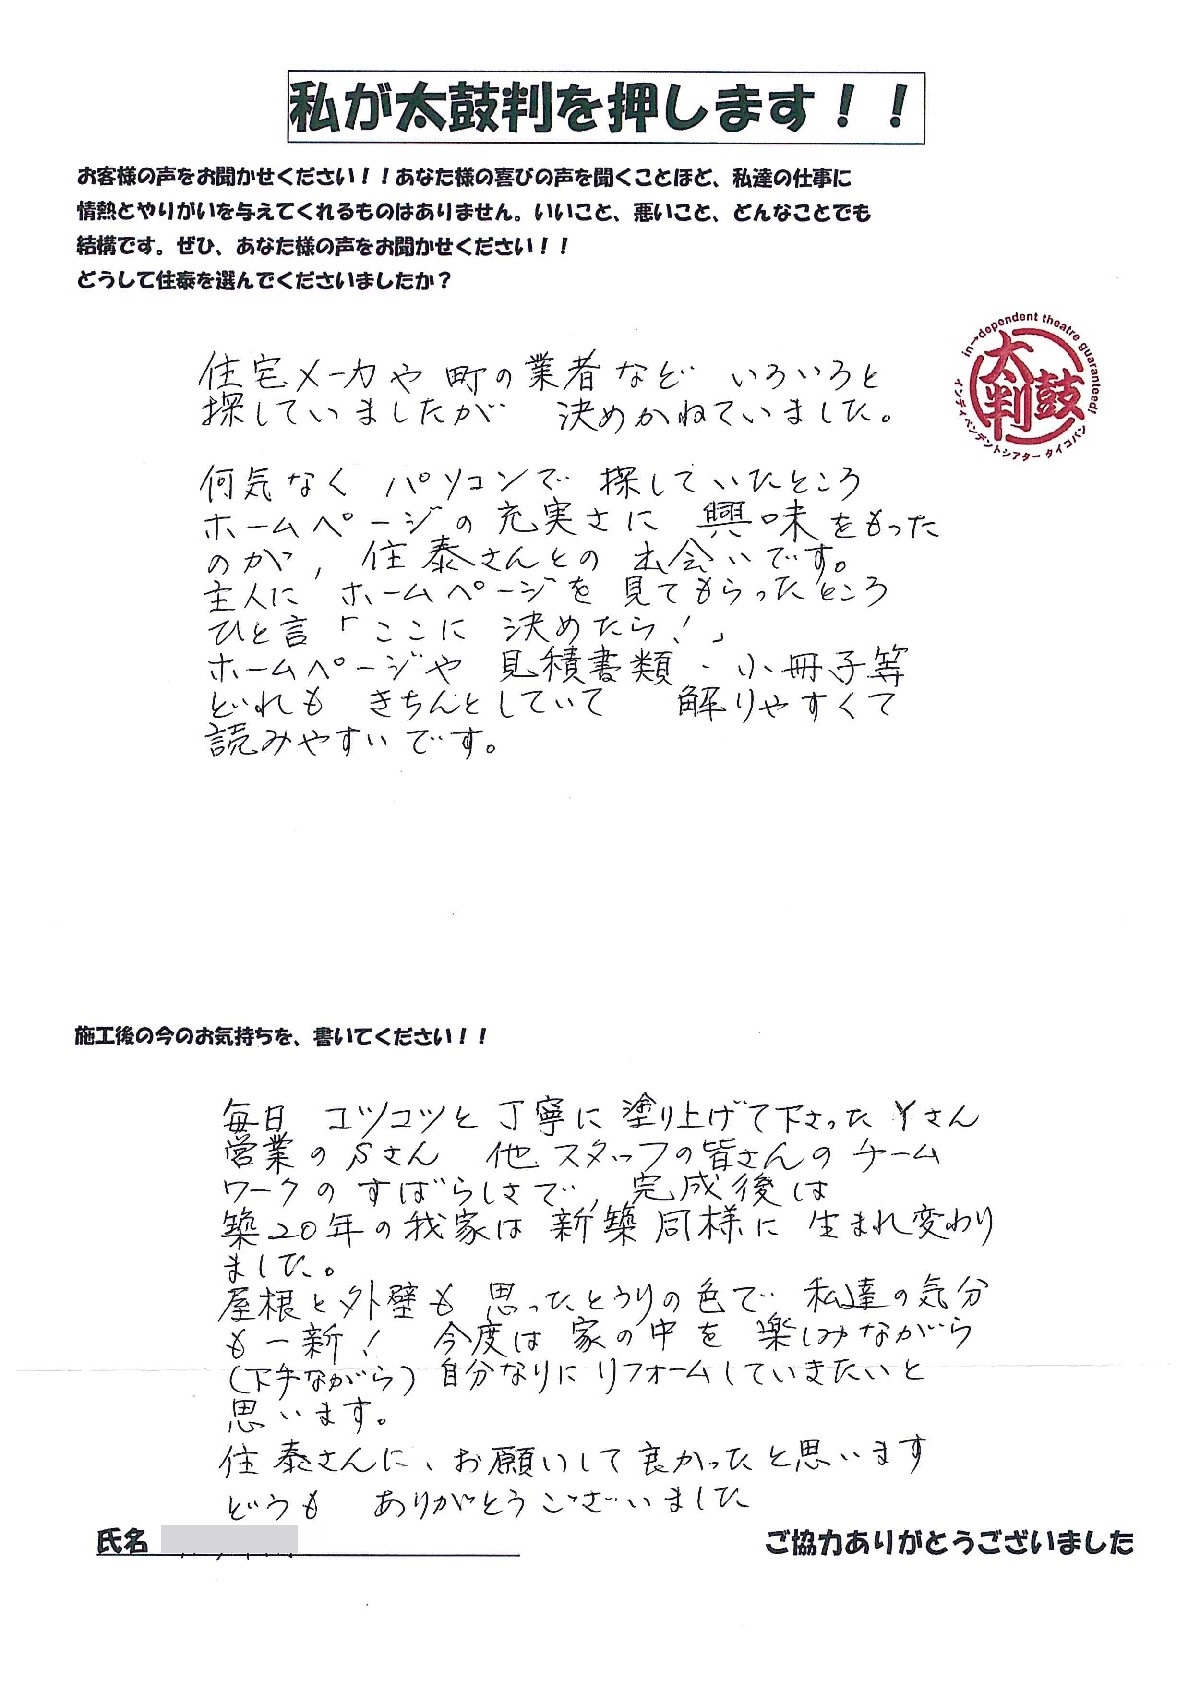 私が太鼓判を押します！！
お客様の声をお聞かせください！！あなた様の喜びの声を聞くことほど、私達の仕事に
情熱とやりがいを与えてくれるものはありません。いいこと、悪いこと、どんなことでも
結構です。ぜひ、あなた様の声をお聞かせください！！
どうして住泰を選んでくださいましたか？
in→dependent theatre guaranteed!
太鼓判
インディペンデントシアター タイコバン
住宅メーカや町の業者など いろいろと
探していましたが 決めかねていました。
何気なく パソコンで 探していたところ
ホームページの充実さに 興味をもった
のが, 住泰さんとの 出会いです。
主人に ホームページを 見てもらったところ
ひと言「ここに 決めたら！」
ホームページや 見積書類、小冊子等
どれも きちんとしていて 解りやすくて
読みやすいです。
施工後の今のお気持ちを、書いてください！！
毎日 コツコツと 丁寧に 塗り上げて下さった Yさん
営業のSさん 他スタッフの皆さんの チーム
ワークの すばらしさで, 完成後は
築20年の我家は 新築同様に 生まれ変わり
ました。
屋根と外壁も 思ったとうりの色で 私達の気分
も一新！ 今度は 家の中を 楽しみながら
(下手ながら) 自分なりに リフォームしていきたいと
思います。
住泰さんに、お願いして良かったと思います
どうも ありがとうございました
氏名
ご協力ありがとうございました